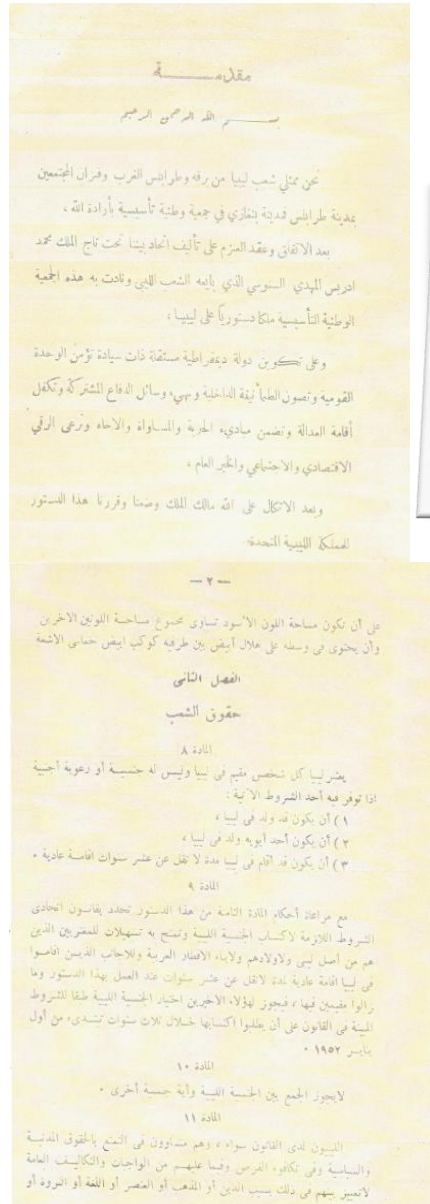 مقدمة
بسم الله الرحمن الرحيم
نحن ممثلي شعب ليبيا من برقه وطرابلس الغرب وفزان المجتمعين
بمدينة طرابلس فمدينة بنغازي في جمعية وطنية تأسيسية بأرادة الله ،
بعد الاتفاق وعقد العزم على تأليف اتحاد بيننا تحت تاج الملك محمد
ادريس المهدي السنوسي الذي بايعه الشعب الليبى ونادت به هذه الجمعية
الوطنية التأسيسية ملكا دستورياً على ليبيا ،
وعلى تكوين دولة ديمقراطية مستقلة ذات سيادة تؤمن الوحدة
القومية وتصون الطمأنينة الداخلية وتهيىء وسائل الدفاع المشتركة وتكفل
أقامة العدالة وتضمن مبادىء الحرية والمساواة والاخاء وترعى الرقي
الاقتصادي والاجتماعي والخير العام ،
وبعد الاتكال على الله مالك الملك وضعنا وقررنا هذا الدستور
للمملكة الليبية المتحدة
— ٢ —
على أن تكون مساحة اللون الأسود تساوى مجموع مساحة اللونين الآخرين
وأن يحتوى فى وسطه على هلال أبيض بين طرفيه كوكب ابيض خماسى الاشعة
الفصل الثانى
حقوق الشعب
المادة ٨
يعتبر ليبيا كل شخص مقيم فى ليبيا وليس له جنسية أو رعوية أجنبية
اذا توفر فيه أحد الشروط الآتية :
١ ) أن يكون قد ولد فى ليبيا ،
٢ ) أن يكون أحد أبويه ولد فى ليبيا ،
٣ ) أن يكون قد أقام فى ليبيا مدة لا تقل عن عشر سنوات اقامة عادية .
المادة ٩
مع مراعاة أحكام المادة الثامنة من هذا الدستور تحدد بقانون اتحادى
الشروط اللازمة لاكتساب الجنسية الليبية وتمنح به تسهيلات للمغتربين الذين
هم من أصل ليبى ولاولادهم ولابناء الاقطار العربية وللاجانب الذين اقاموا
فى ليبيا اقامة عادية مدة لاتقل عن عشر سنوات عند العمل بهذا الدستور وما
زالوا مقيمين فيها ، فيجوز لهؤلاء الاخيرين اختيار الجنسية الليبية طبقا للشروط
المبينة فى القانون على أن يطلبوا اكتسابها خلال ثلاث سنوات تبتدىء من أول
يناير ١٩٥٢ .
المادة ١٠
لايجوز الجمع بين الجنسية الليبية وأية جنسية أخرى .
المادة ١١
الليبيون لدى القانون سواء ، وهم متساوون فى التمتع بالحقوق المدنية
والسياسية وفى تكافوء الفرص وفيما عليهم من الواجبات والتكاليف العامة
لاتمييز بينهم فى ذلك بسبب الدين أو المذهب أو العنصر أو اللغة أو الثروة أو